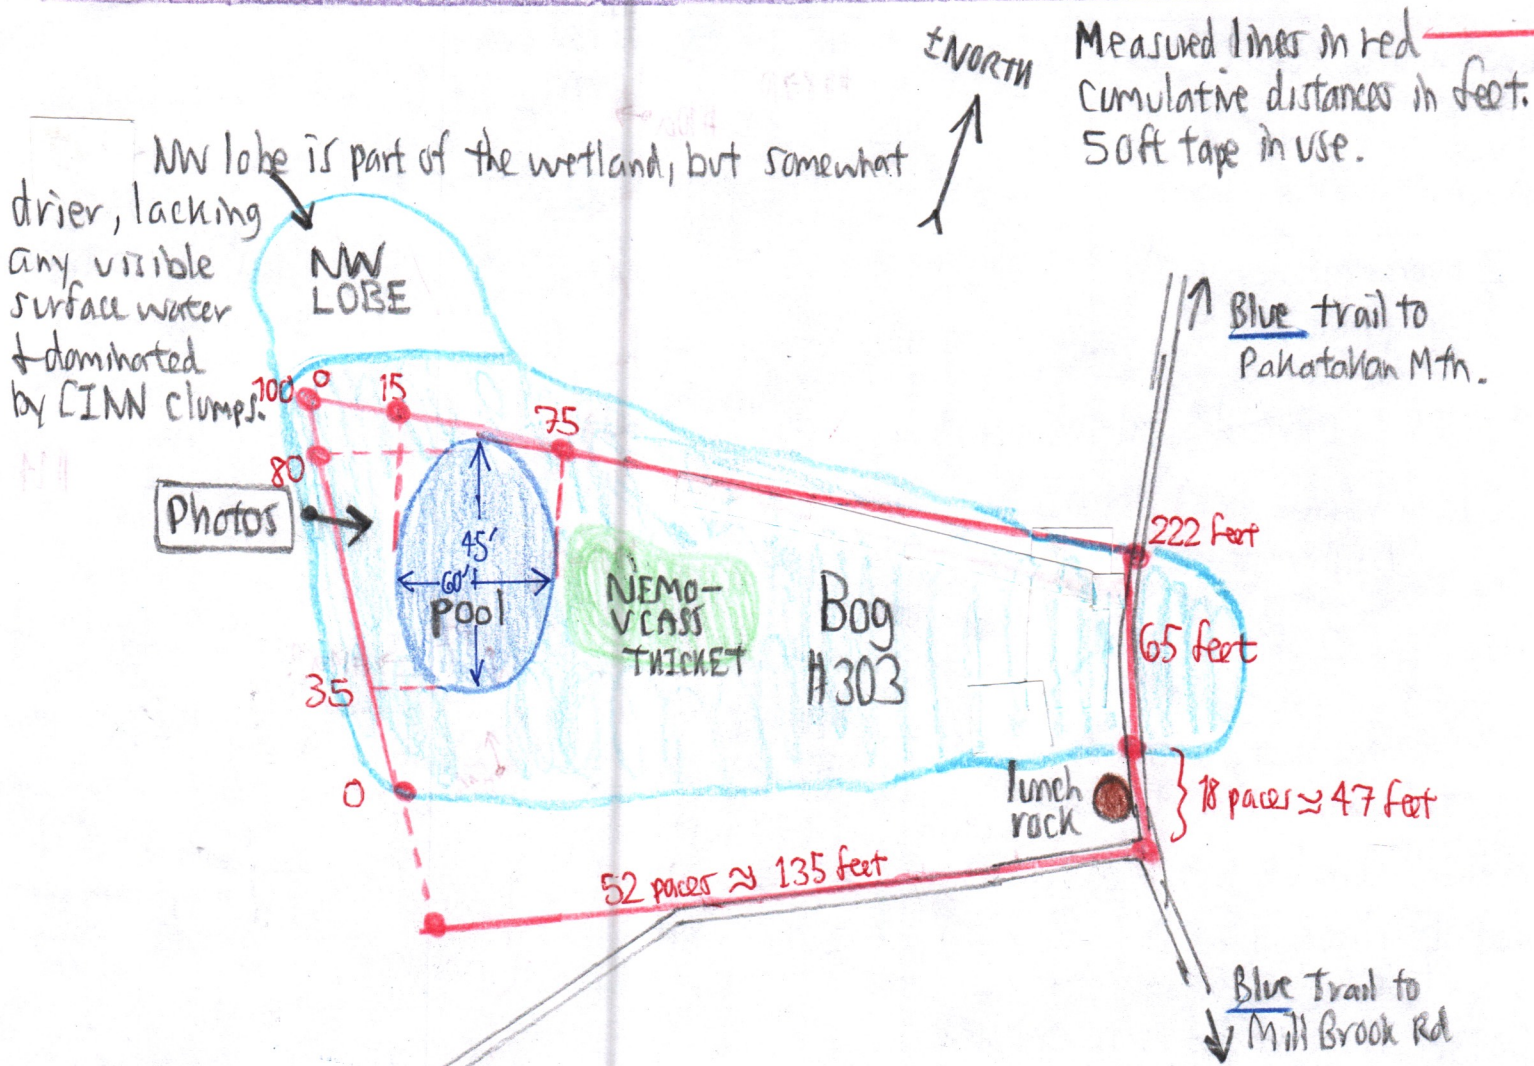 ±NORTH
Measured lines in red
cumulative distances in feet.
50ft tape in use.
NW lobe is part of the wetland, but somewhat
drier, lacking
any visible
surface water
+ dominated
by CINN clumps.
NW
LOBE
Blue trail to
Pakatakan Mtn.
100
0
15
75
80
Photos
222 feet
45'
60'
pool
NEMO-
VCASS
THICKET
Bog
#303
65 feet
35
0
lunch
rock
18 paces ≈ 47 feet
52 paces ≈ 135 feet
Blue Trail to
Mill Brook Rd